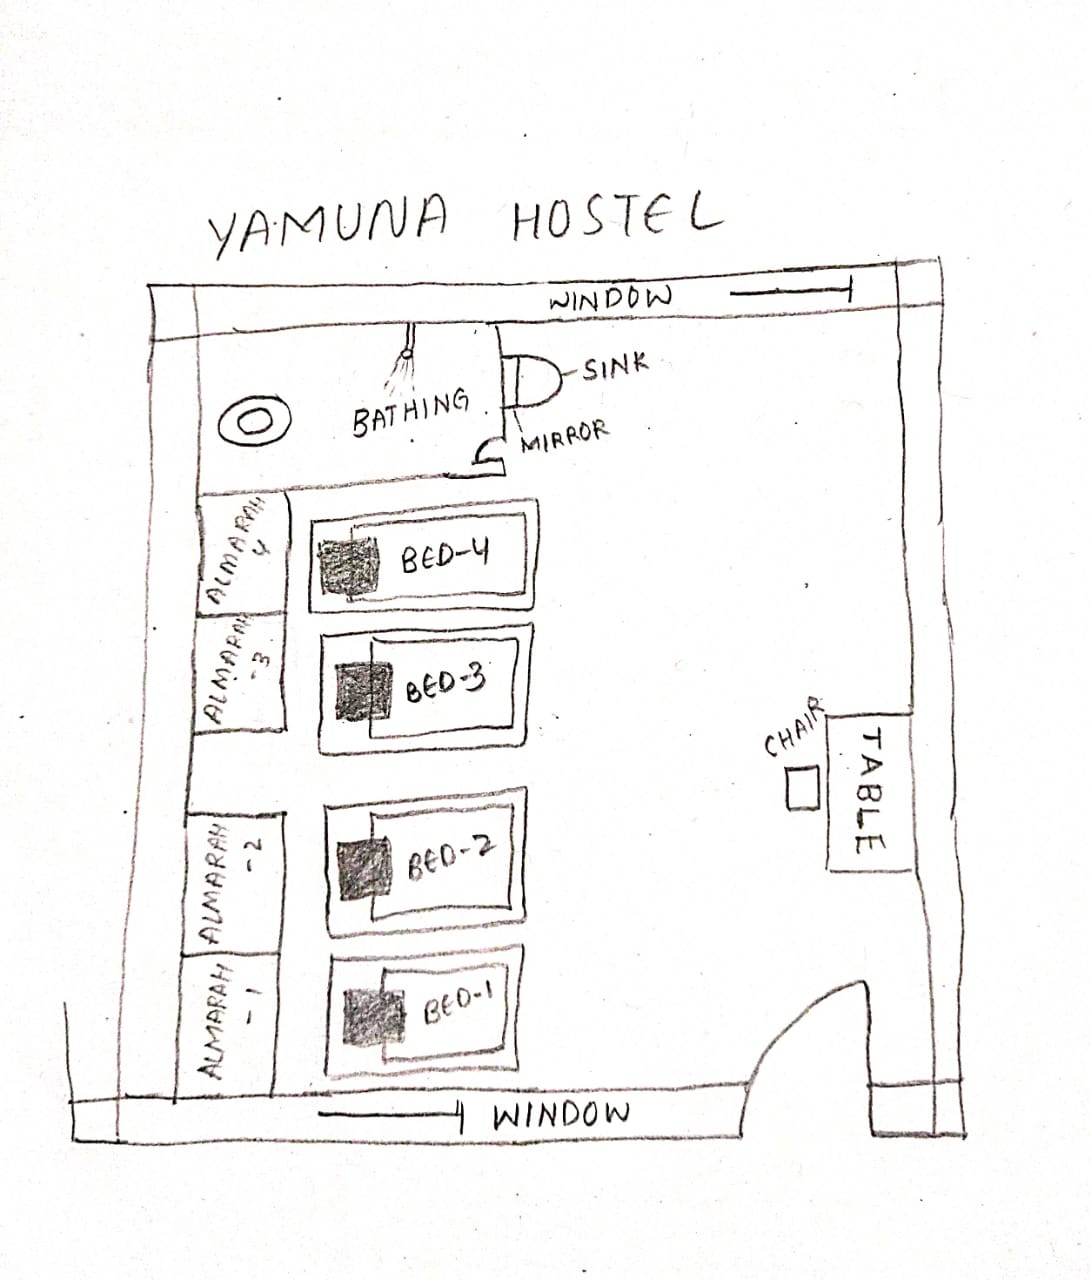 YAMUNA HOSTEL
WINDOW
SINK
BATHING
MIRROR
ALMARAH
4
BED-4
ALMARAH
-3
BED-3
CHAIR
TABLE
ALMARAH
-2
BED-2
ALMARAH
-1
BED-1
WINDOW